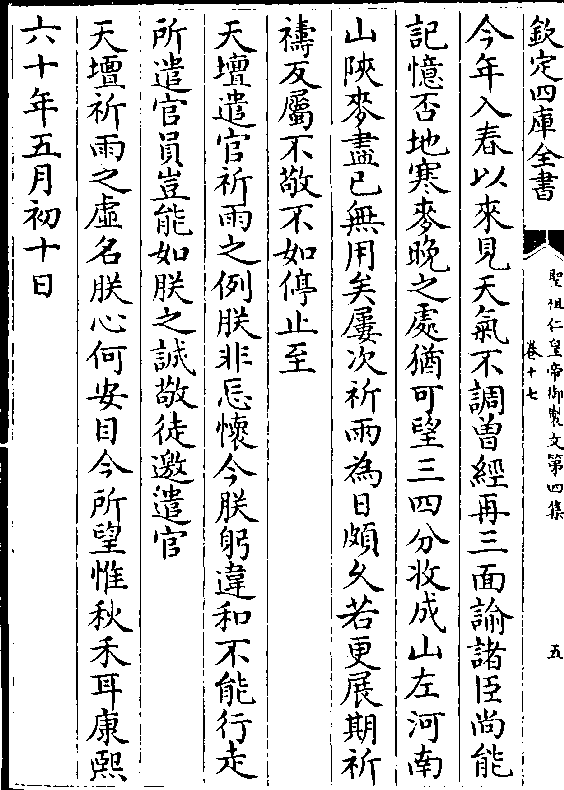 欽定四庫全書
聖祖仁皇帝御製文第四集
卷十七
五
今年入春以來見天氣不調曽經再三面諭諸臣尚能
記憶否地寒麥晚之處猶可望三四分收成山左河南
山陜麥盡已無用矣屢次祈雨為日頗久若更展期祈
禱反屬不敬不如停止至
天壇遣官祈雨之例朕非忘懷今朕躬違和不能行走
所遣官員豈能如朕之誠敬徒邀遣官
天壇祈雨之虛名朕心何安目今所望惟秋禾耳康熙
六十年五月初十日